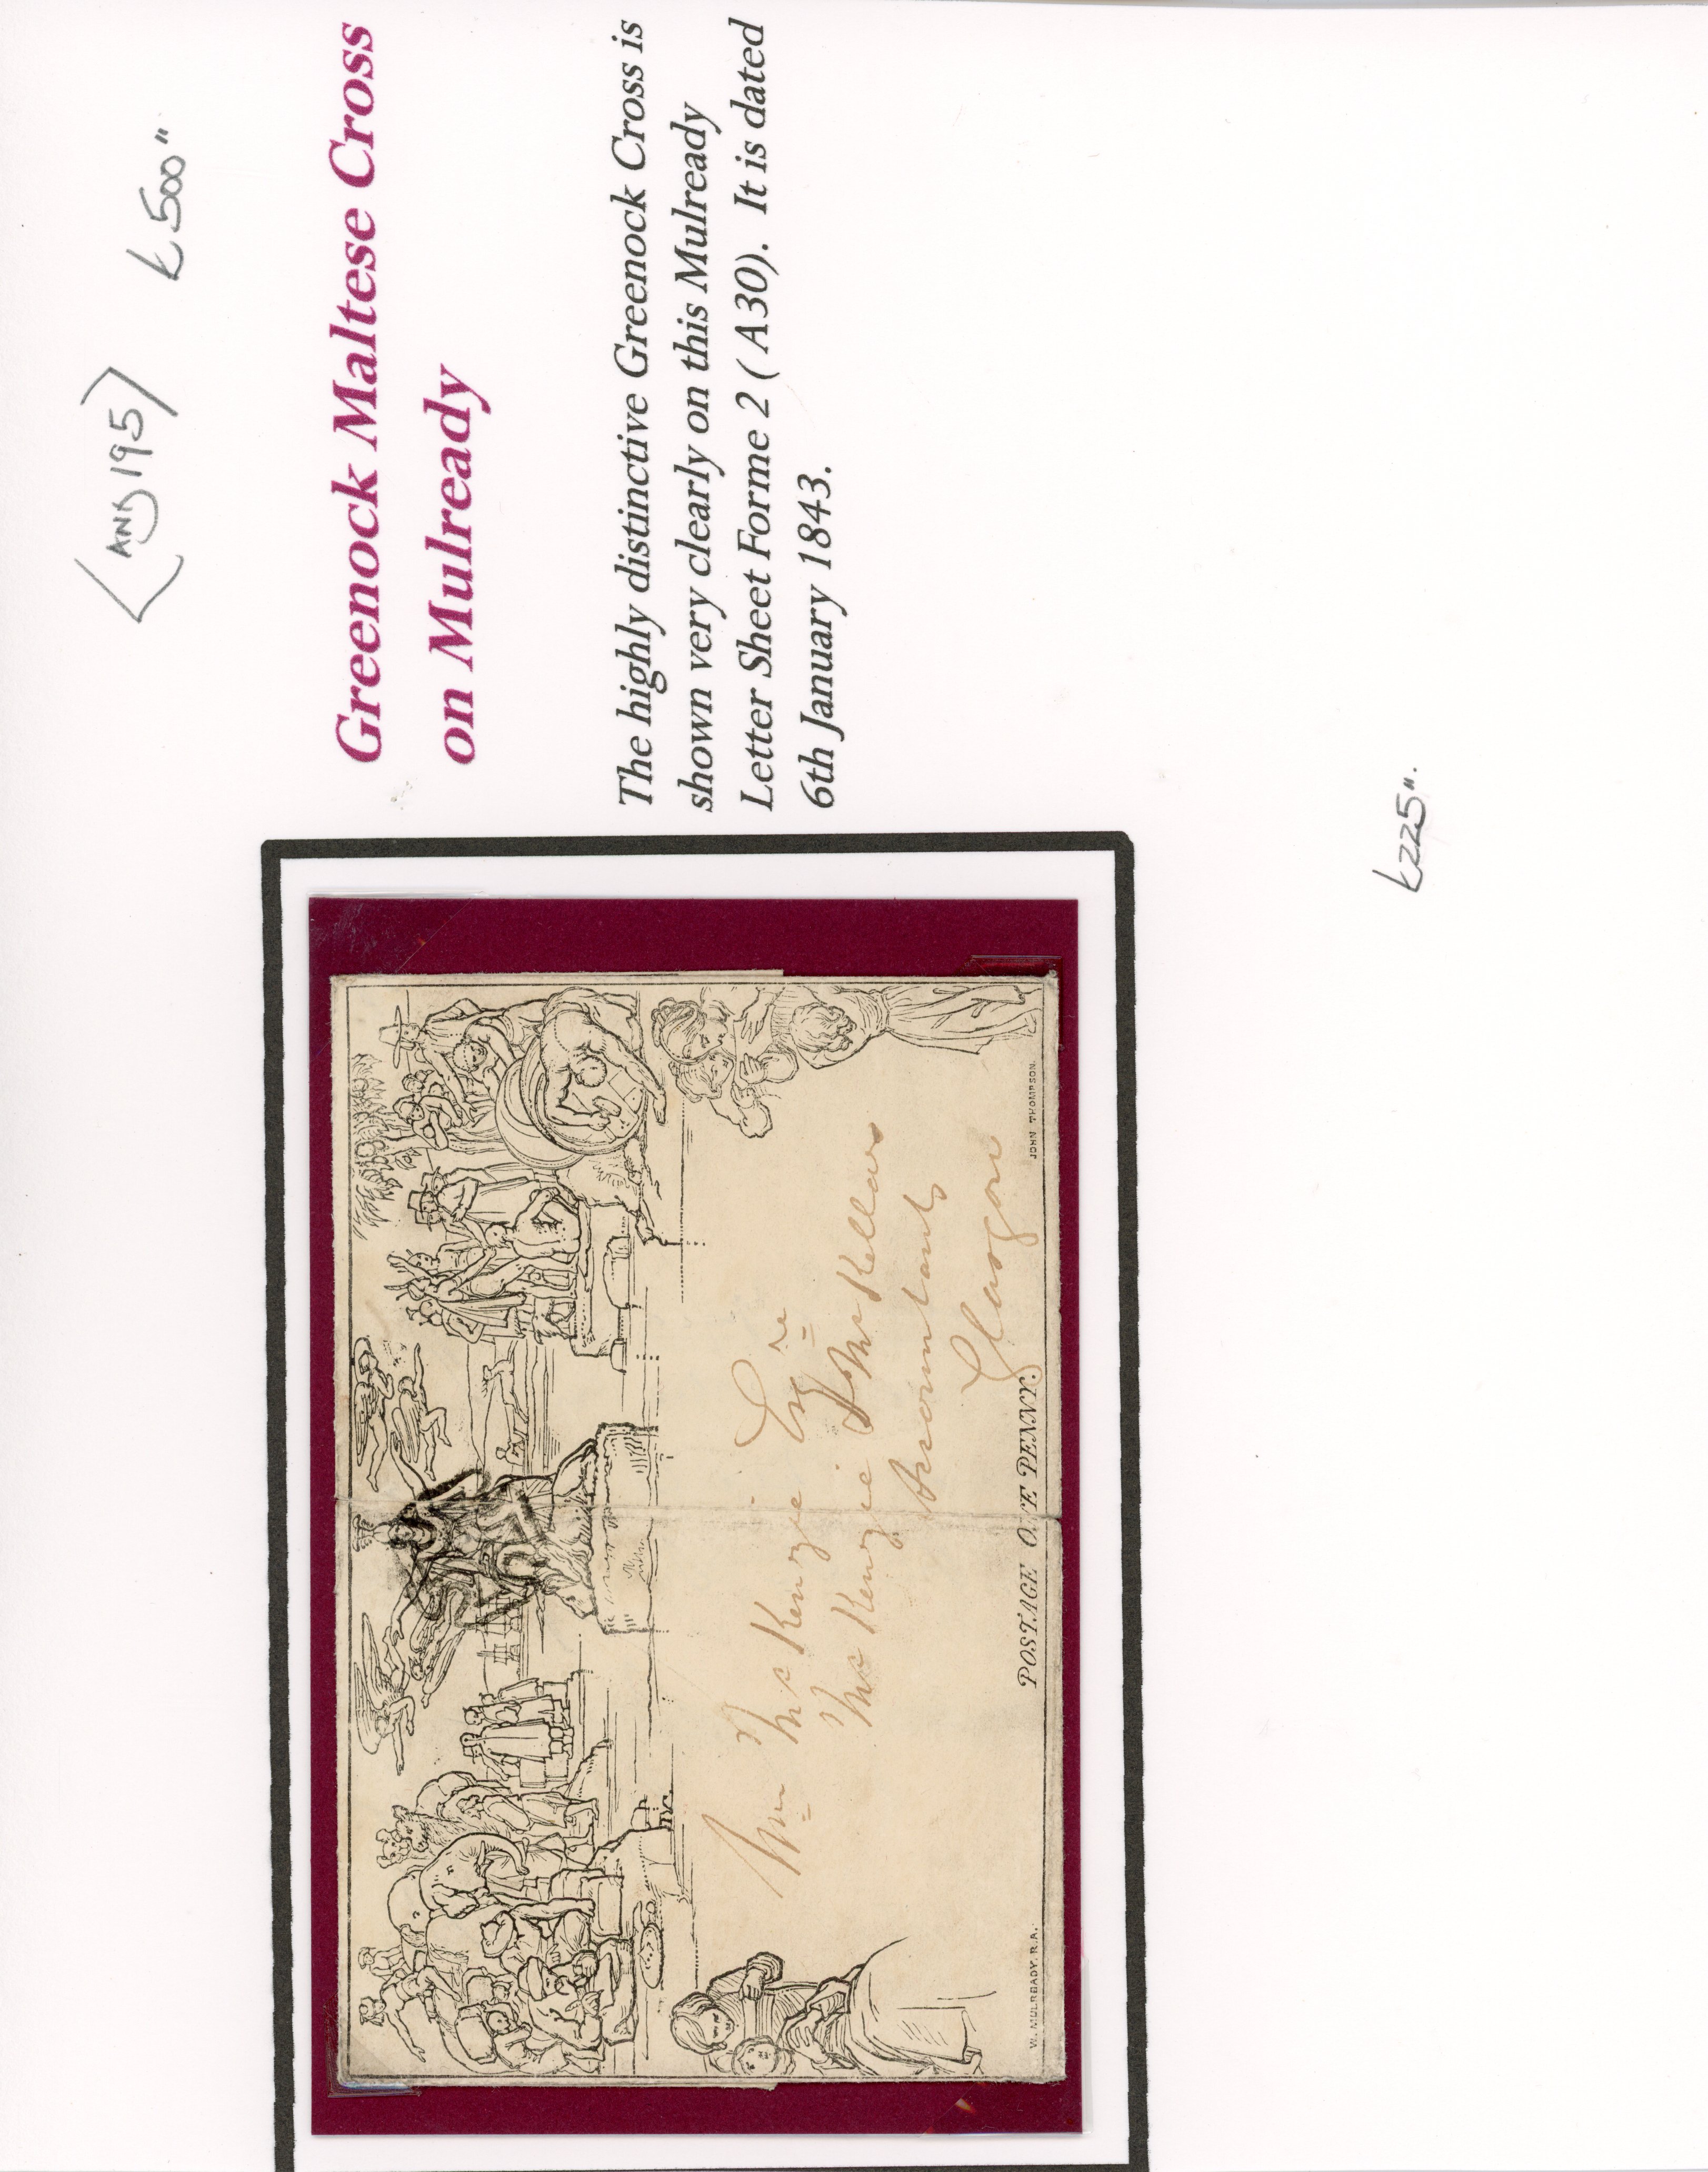 £500"
(ANS 195)
Greenock Maltese Cross
on Mulready
The highly distinctive Greenock Cross is
shown very clearly on this Mulready
Letter Sheet Forme 2 ( A30). It is dated
6th January 1843.
£225".
Wm McKenzie Esqre
McKenzie & McKellars
Accountants
Glasgow
POSTAGE ONE PENNY.
W. MULREADY. R.A.
JOHN THOMPSON.